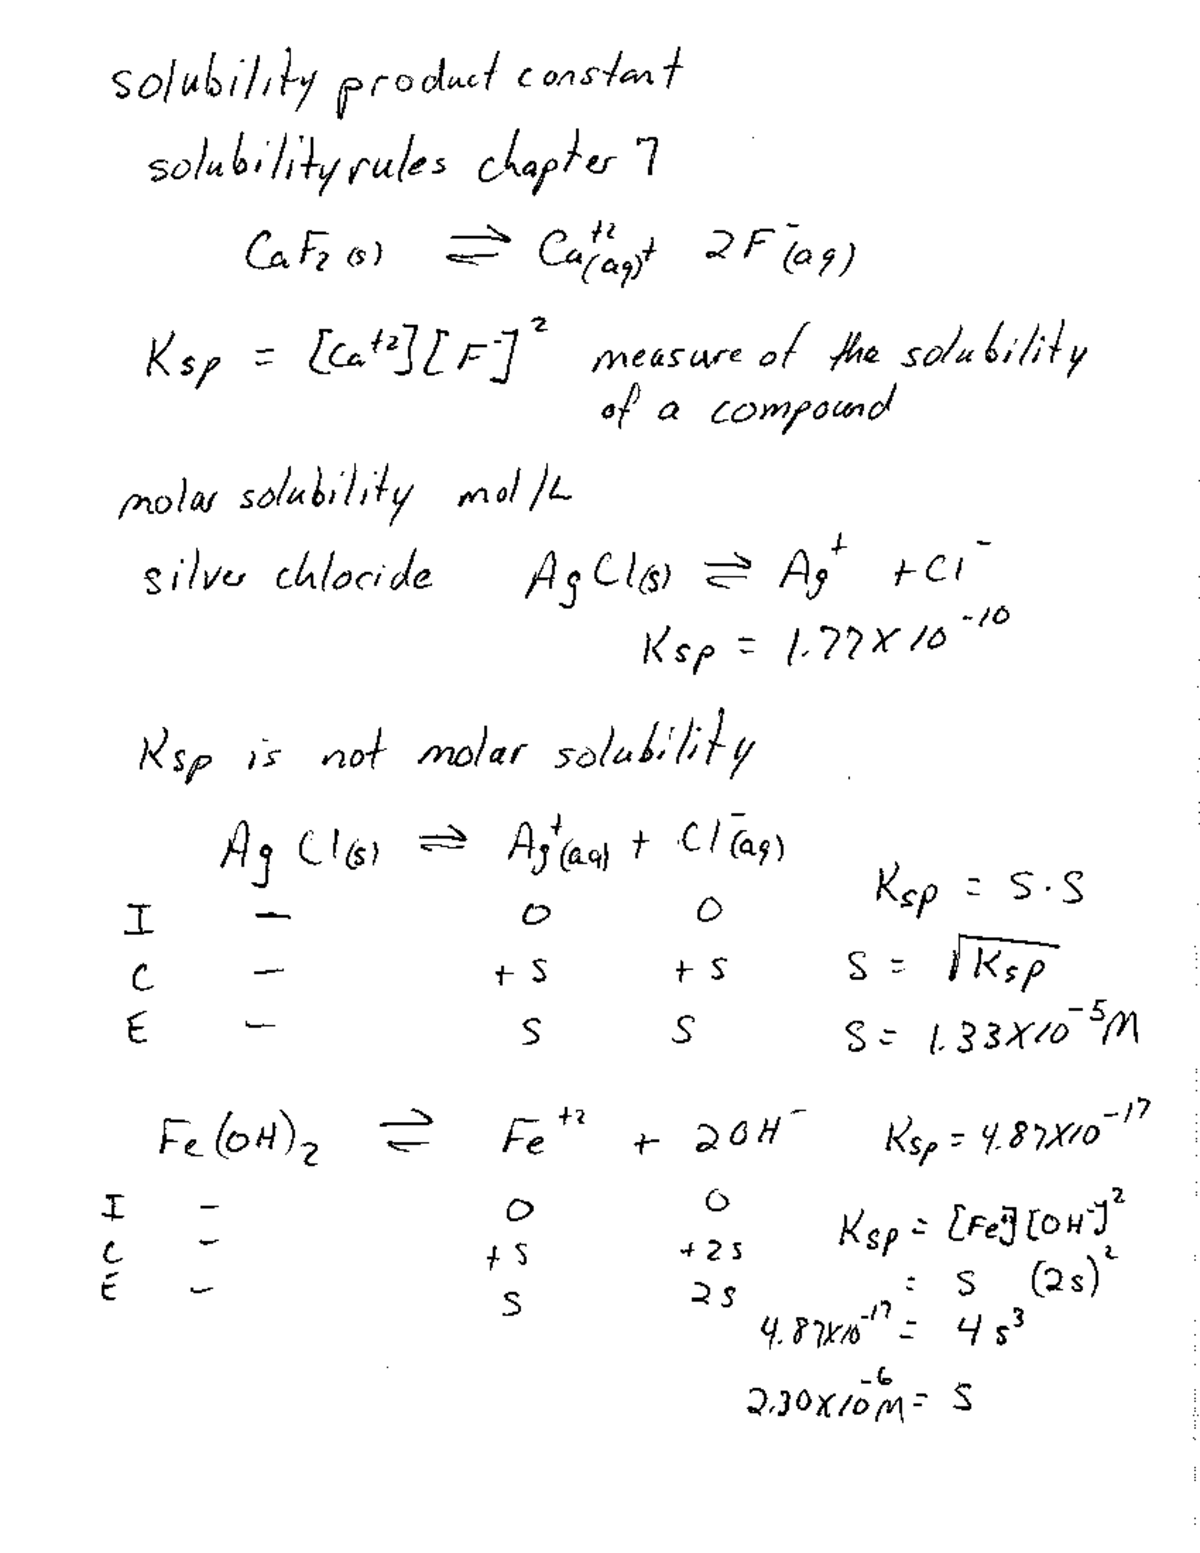 solubility product constant
solubility rules chapter 7
CaF₂(s) ⇌ Ca⁺²(aq) + 2F⁻(aq)
Ksp = [Ca⁺²][F⁻]² measure of the solubility
of a compound
molar solubility mol/L
silver chloride AgCl(s) ⇌ Ag⁺ + Cl⁻
Ksp = 1.77X10⁻¹⁰
Ksp is not molar solubility
AgCl(s) ⇌ Ag⁺(aq) + Cl⁻(aq)
Ksp = S·S
I — 0 0
C — +S +S S = √Ksp
E — S S S = 1.33X10⁻⁵M
Fe(OH)₂ ⇌ Fe⁺² + 2OH⁻ Ksp = 4.87X10⁻¹⁷
I — 0 0 Ksp = [Fe⁺²][OH⁻]²
C — +S +2S = S (2s)²
E — S 2S
4.87X10⁻¹⁷ = 4s³
2.30X10⁻⁶M = S